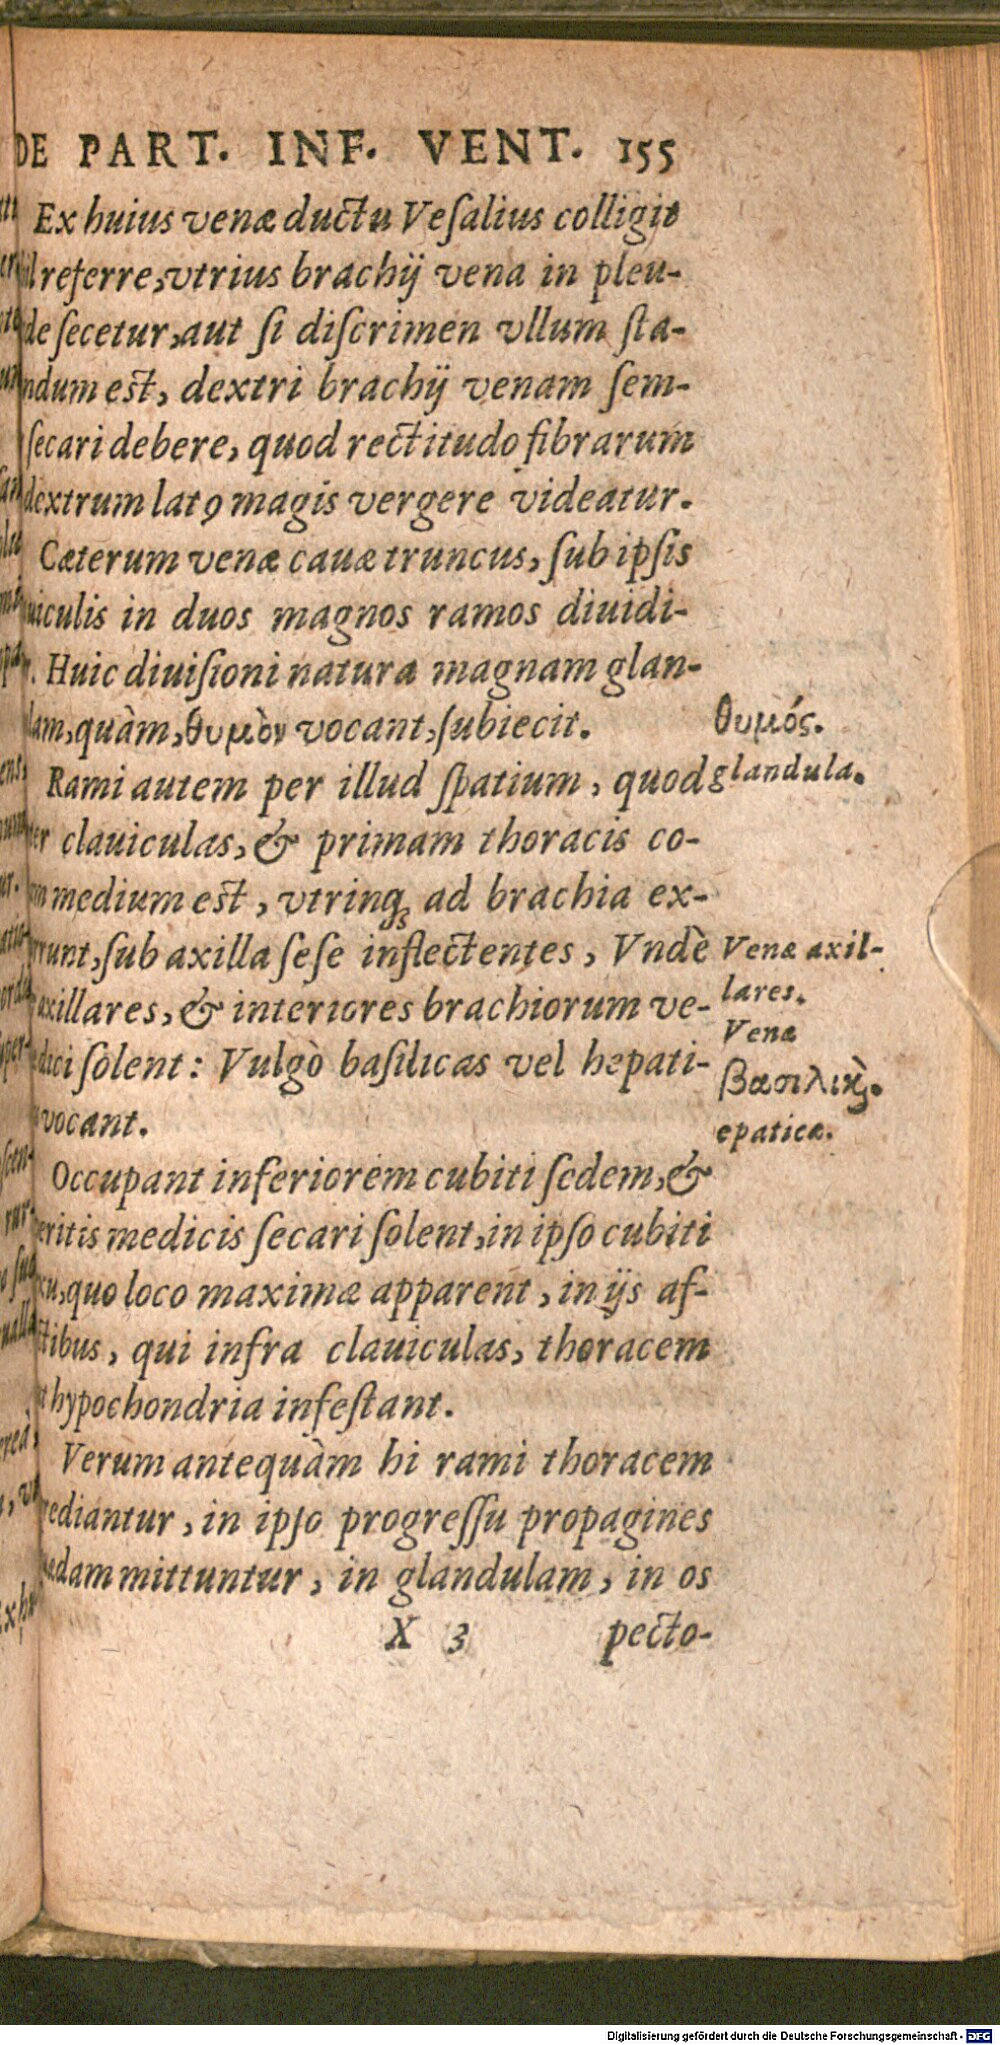 DE PART. INF. VENT. 155
Ex huius venæ ductu Veſalius colligit
referre, vtrius brachij vena in pleu-
de ſecetur, aut ſi diſcrimen vllum ſta-
ndum eſt, dextri brachij venam ſem-
ſecari debere, quod rectitudo fibrarum
dextrum latꝰ magis vergere videatur.
Cæterum venæ cauæ truncus, ſub ipſis
uiculis in duos magnos ramos diuidi-
. Huic diuiſioni natura magnam glan-
lam, quàm, θυμὸν vocant, ſubiecit.
θυμός.
Rami autem per illud ſpatium, quod
glandula.
er clauiculas, & primam thoracis co-
m medium eſt, vtrinq; ad brachia ex-
runt, ſub axilla ſeſe inflectentes, Vndè
Venæ axil-
axillares, & interiores brachiorum ve-
lares.
Venæ
dici ſolent: Vulgò baſilicas vel hepati-
βασιλικὴ.
vocant.
epaticæ.
Occupant inferiorem cubiti ſedem, &
eritis medicis ſecari ſolent, in ipſo cubiti
xu, quo loco maximæ apparent, in ijs af-
tibus, qui infra clauiculas, thoracem
t hypochondria infeſtant.
Verum antequàm hi rami thoracem
rediantur, in ipſo progreſſu propagines
ædam mittuntur, in glandulam, in os
X 3 pecto-
Digitalisierung gefördert durch die Deutsche Forschungsgemeinschaft - DFG